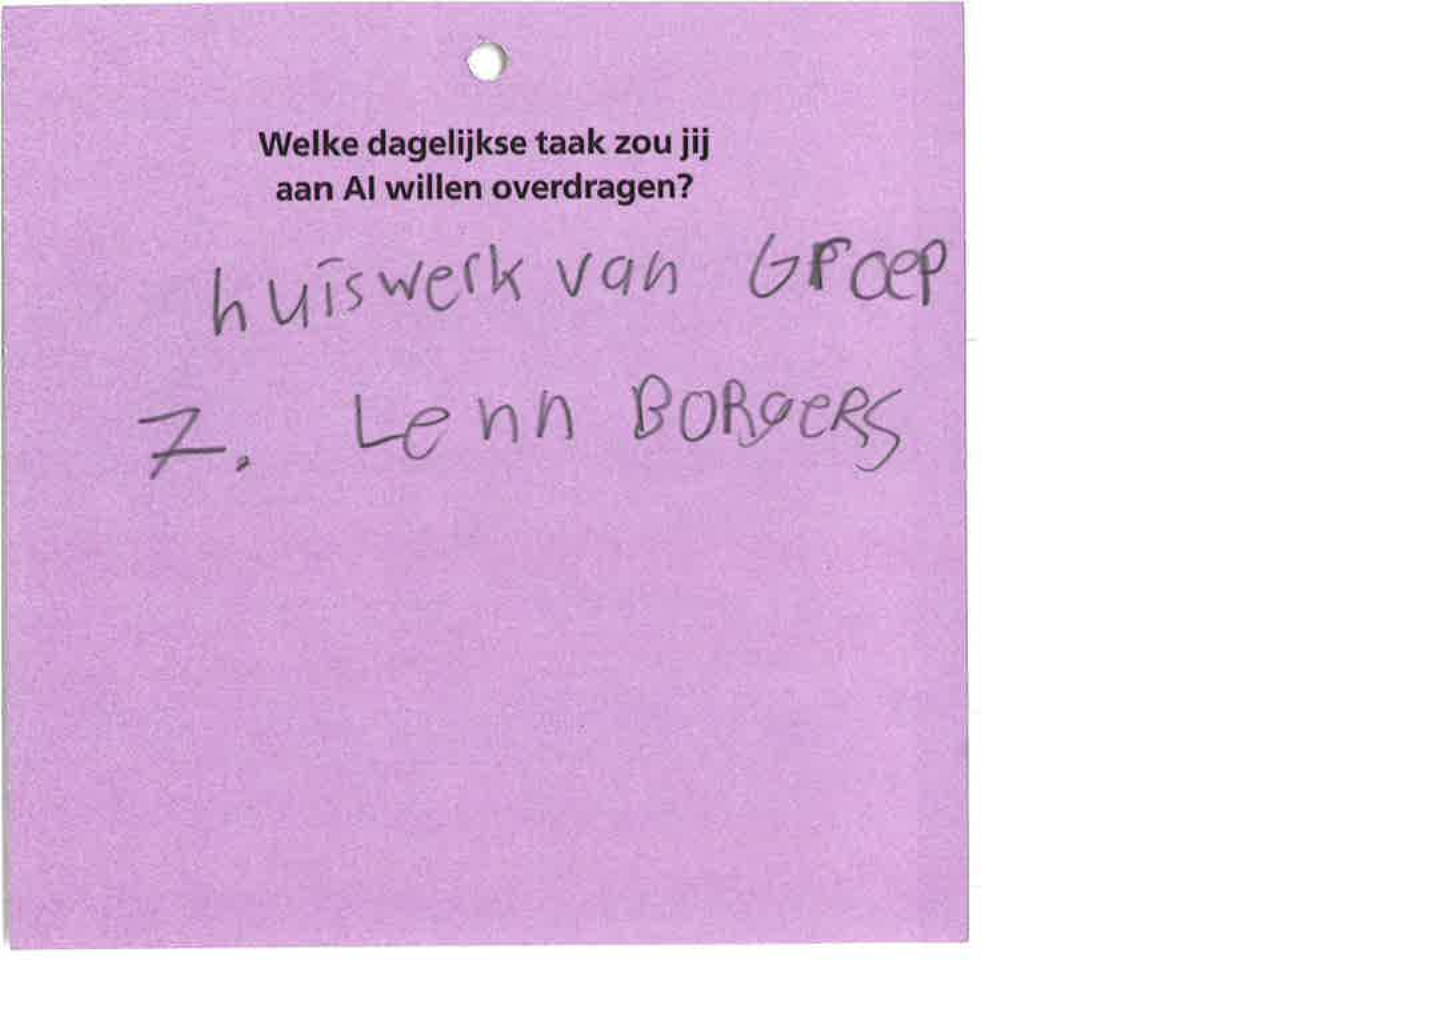 Welke dagelijkse taak zou jij
aan AI willen overdragen?
huiswerk van Groep
7. Lenn BORgeRS